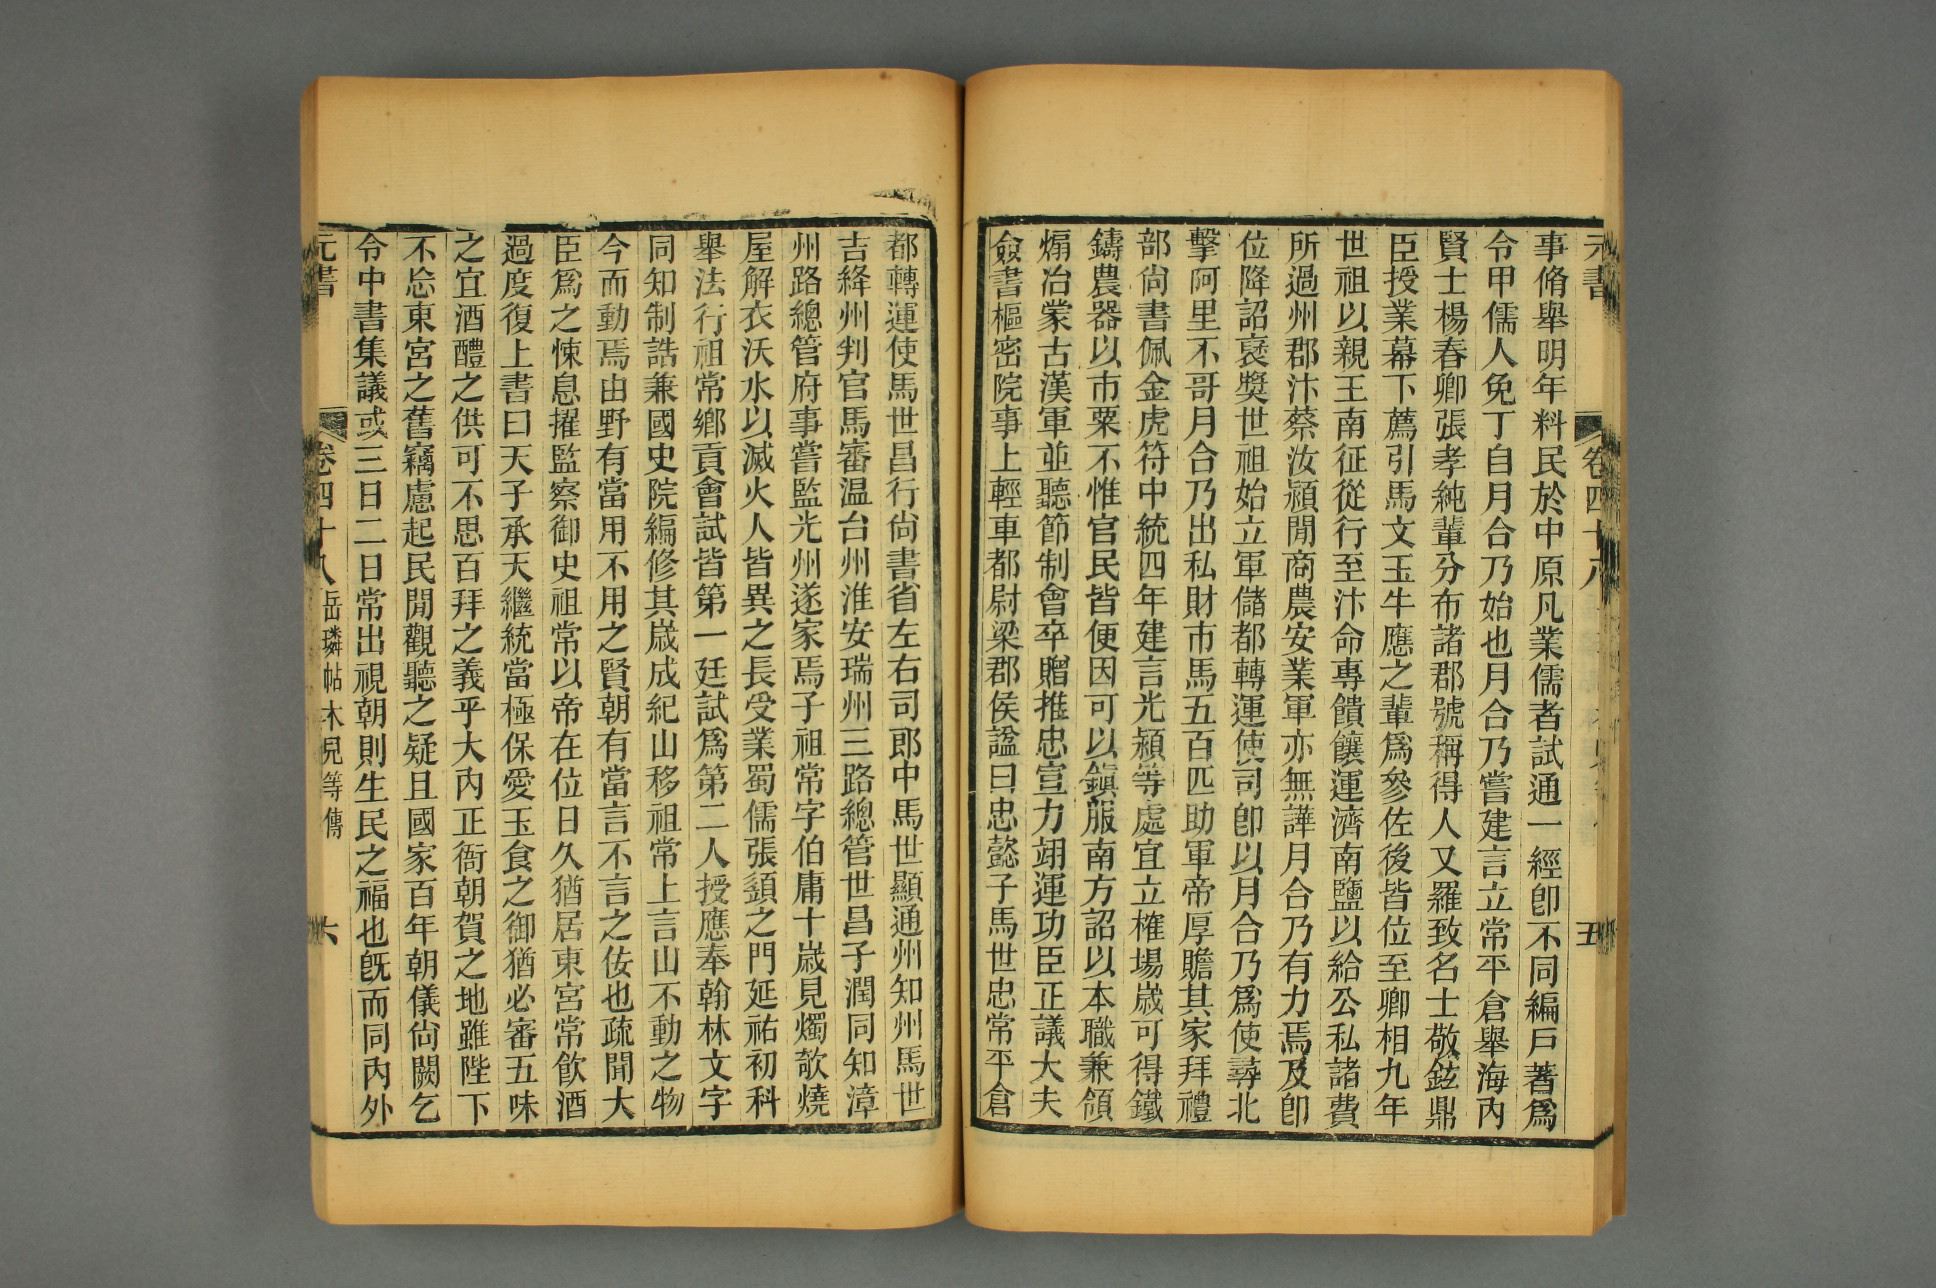 元書
卷四十八
五
事脩舉明年料民於中原凡業儒者試通一經卽不同編戶著爲
令甲儒人免丁自月合乃始也月合乃嘗建言立常平倉舉海內
賢士楊春卿張孝純輩分布諸郡號稱得人又羅致名士敬鉉鼎
臣授業幕下薦引馬文玉牛應之輩爲參佐後皆位至卿相九年
世祖以親王南征從行至汴命專饋饟運濟南鹽以給公私諸費
所過州郡汴蔡汝潁閒商農安業軍亦無譁月合乃有力焉及卽
位降詔襃獎世祖始立軍儲都轉運使司卽以月合乃爲使尋北
擊阿里不哥月合乃出私財市馬五百匹助軍帝厚贍其家拜禮
部尙書佩金虎符中統四年建言光潁等處宜立榷場歲可得鐵
鑄農器以市粟不惟官民皆便因可以鎭服南方詔以本職兼領
煽冶蒙古漢軍並聽節制會卒贈推忠宣力翊運功臣正議大夫
僉書樞密院事上輕車都尉梁郡侯諡曰忠懿子馬世忠常平倉
都轉運使馬世昌行尙書省左右司郎中馬世顯通州知州馬世
吉絳州判官馬審温台州淮安瑞州三路總管世昌子潤同知漳
州路總管府事嘗監光州遂家焉子祖常字伯庸十歲見燭欹燒
屋解衣沃水以滅火人皆異之長受業蜀儒張䇓之門延祐初科
舉法行祖常鄉貢會試皆第一廷試爲第二人授應奉翰林文字
同知制誥兼國史院編修其歲成紀山移祖常上言山不動之物
今而動焉由野有當用不用之賢朝有當言不言之佞也疏聞大
臣爲之悚息擢監察御史祖常以帝在位日久猶居東宮常飮酒
過度復上書曰天子承天繼統當極保愛玉食之御猶必審五味
之宜酒醴之供可不思百拜之義乎大內正衙朝賀之地雖陛下
不忘東宮之舊竊慮起民閒觀聽之疑且國家百年朝儀尙闕乞
令中書集議或三日二日常出視朝則生民之福也旣而同內外
元書
卷四十八 岳璘帖木兒等傳
六